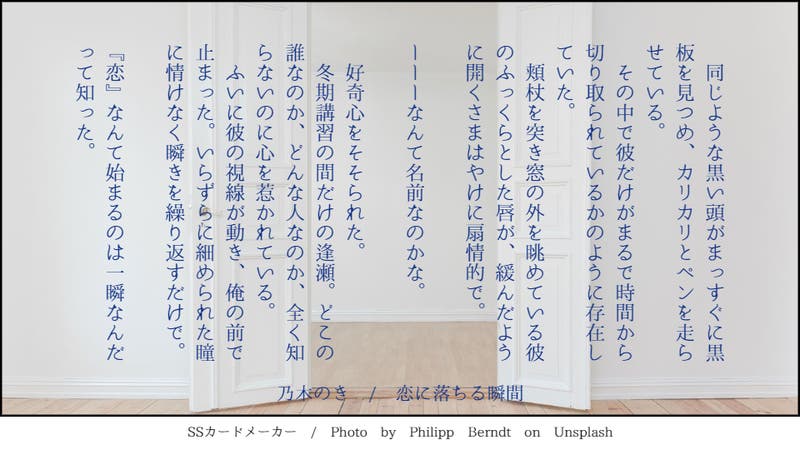 同じような黒い頭がまっすぐに黒
板を見つめ、カリカリとペンを走ら
せている。
その中で彼だけがまるで時間から
切り取られているかのように存在し
ていた。
頬杖を突き窓の外を眺めている彼
のふっくらとした唇が、緩んだよう
に開くさまはやけに扇情的で。
ーーーなんて名前なのかな。
好奇心をそそられた。
冬期講習の間だけの逢瀬。どこの
誰なのか、どんな人なのか、全く知
らないのに心を惹かれている。
ふいに彼の視線が動き、俺の前で
止まった。いらずらに細められた瞳
に情けなく瞬きを繰り返すだけで。
『恋』なんて始まるのは一瞬なんだ
って知った。
乃木のき / 恋に落ちる瞬間
SSカードメーカー / Photo by Philipp Berndt on Unsplash